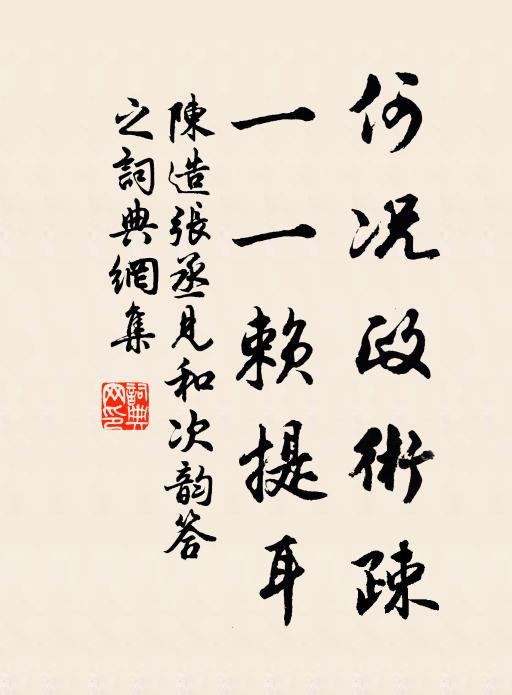 何况政術疎
一一賴提耳
陳造張丞見和次韵答
之詞典網集
詞典網印